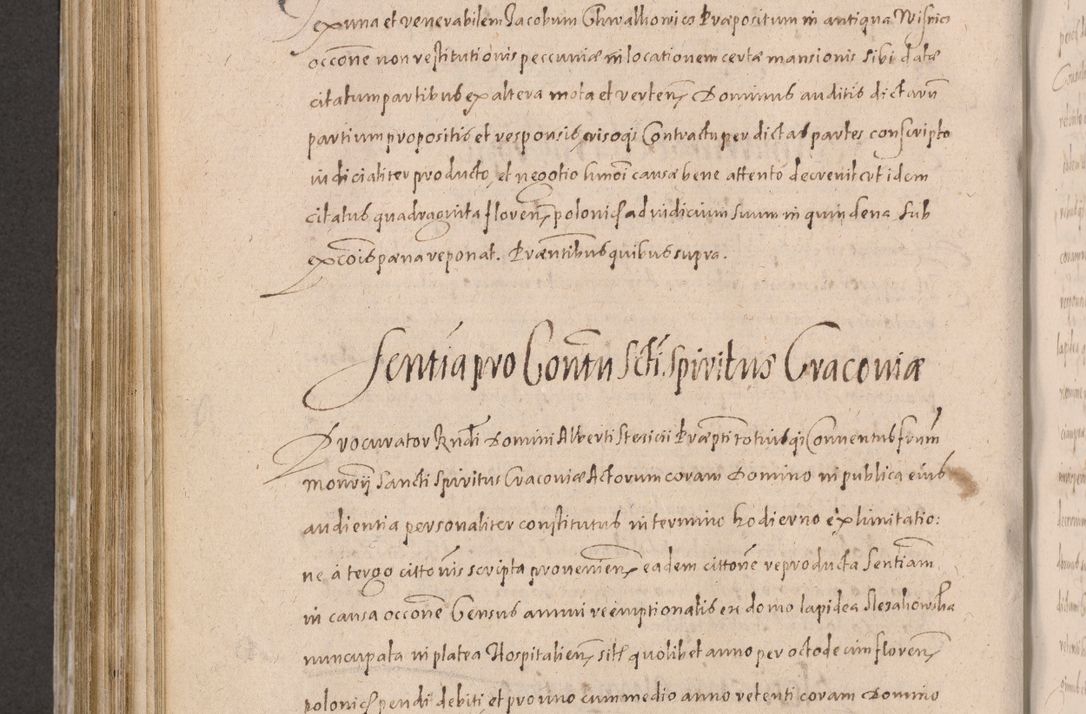 ex una et venerabilem Jacobum Chwalkowic Præpositum in antiqua Wisnic
occone non restitutionis peccuniæ in locationem certæ mansionis sibi datæ
citatum partibus ex altera mota et verten, Dominus auditis dictarū
partium propositis et responsis, visoqȝ Contractu per dictas partes conscripto
iudicialiter producto, et negotio hmōi causa bene attento decrevit ut idem
citatus quadraginta floren, polonicȝ ad iudicium suum in quindena sub
excōis pæna reponat. Præntibus quibus supra.
Sentīa pro Conūtu Scti Spiritus Cracoviæ
Procurator Rndi Domini Alberti Præpti totiusqȝ Conventus frūm
monrij Sancti Spiritus Cracoviæ Actorum coram Domino in publica eius
audientia personaliter constitutus in termino hodierno ex limitatio:
ne à tergo cittonis scripta provenien, eadem cittone reproducta Sentiam
in causa occone Census annui reemptionalis ex domo lapidea
nuncupata in platea Hospitalien, sitȝ quolibet anno per octodecim floren,
polonicȝ pendi debiti, et pro uno cum medio anno retenti coram Domino